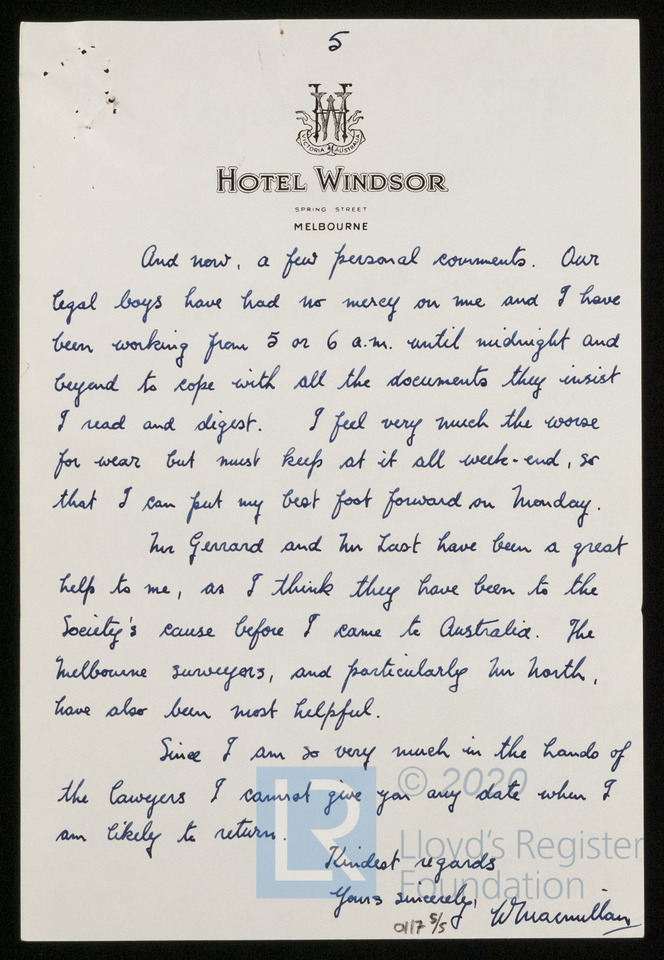 5
VICTORIA AUSTRALIA
HOTEL WINDSOR
SPRING STREET
MELBOURNE
And now, a few personal comments. Our
legal boys have had no mercy on me and I have
been working from 5 or 6 a.m. until midnight and
beyond to cope with all the documents they insist
I read and digest. I feel very much the worse
for wear but must keep at it all week-end, so
that I can put my best foot forward on Monday.
Mr Gerrard and Mr Last have been a great
help to me, as I think they have been to the
Society's cause before I came to Australia. The
Melbourne surveyors, and particularly Mr North,
have also been most helpful.
Since I am so very much in the hands of
the lawyers I cannot give you any date when I
am likely to return.
Kindest regards
Yours sincerely,
WMacmillan
0117 5/5
LR
© 2020
Lloyd's Register
Foundation